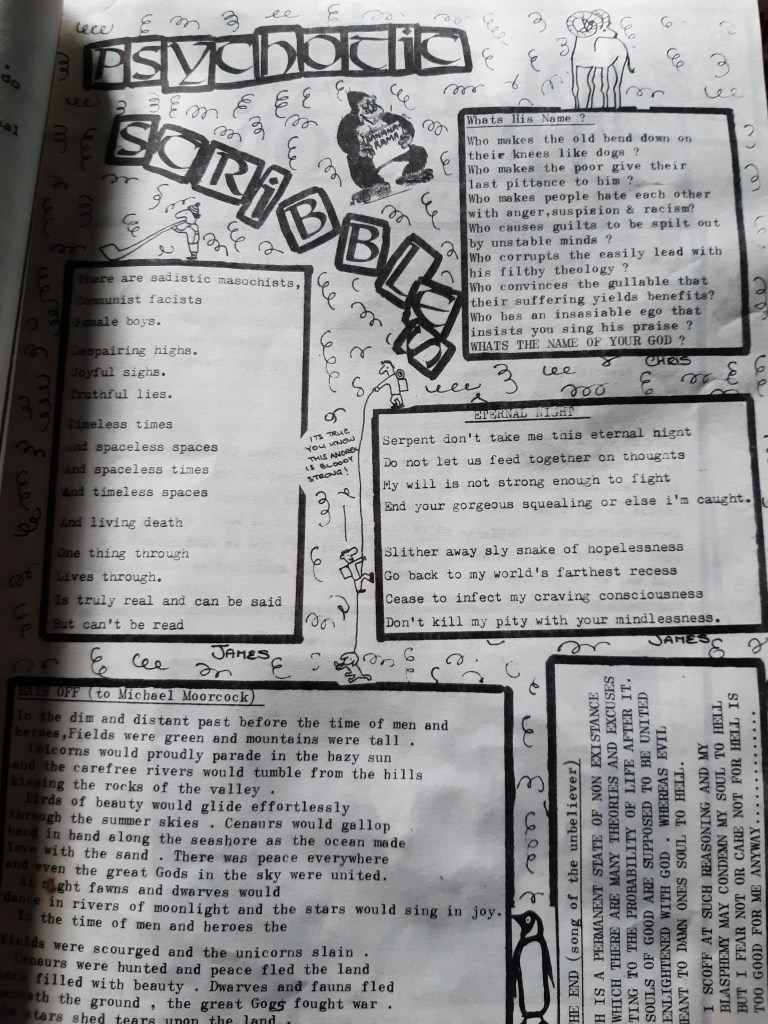 do
el
PSYCHOTIC
SCRIBBLES
BANANA
RAMA
Whats His Name ?
Who makes the old bend down on
their knees like dogs ?
Who makes the poor give their
last pittance to him ?
Who makes people hate each other
with anger,suspision & racism?
Who causes guilts to be spilt out
by unstable minds ?
Who corrupts the easily lead with
his filthy theology ?
Who convinces the gullable that
their suffering yields benefits?
Who has an insasiable ego that
insists you sing his praise ?
WHATS THE NAME OF YOUR GOD ?
CHRIS
There are sadistic masochists,
Communist facists
Female boys.
Despairing highs.
Joyful sighs.
Truthful lies.
Timeless times
And spaceless spaces
And spaceless times
And timeless spaces
And living death
One thing through
Lives through.
Is truly real and can be said
But can't be read
JAMES
ITS TRUE
YOU KNOW
THIS ANDREX
IS BLOODY
STRONG!
ETERNAL NIGHT
Serpent don't take me this eternal night
Do not let us feed together on thoughts
My will is not strong enough to fight
End your gorgeous squealing or else i'm caught.
Slither away sly snake of hopelessness
Go back to my world's farthest recess
Cease to infect my craving consciousness
Don't kill my pity with your mindlessness.
JAMES
HATS OFF (to Michael Moorcock)
In the dim and distant past before the time of men and
heroes,Fields were green and mountains were tall .
Unicorns would proudly parade in the hazy sun
and the carefree rivers would tumble from the hills
kissing the rocks of the valley .
Birds of beauty would glide effortlessly
through the summer skies . Cenaurs would gallop
hand in hand along the seashore as the ocean made
love with the sand . There was peace everywhere
and even the great Gods in the sky were united.
At night fawns and dwarves would
dance in rivers of moonlight and the stars would sing in joy.
In the time of men and heroes the
fields were scourged and the unicorns slain .
Cenaurs were hunted and peace fled the land
once filled with beauty . Dwarves and fauns fled
beneath the ground , the great Gogs fought war .
the stars shed tears upon the land .
HE END (song of the unbeliever)
H IS A PERMANENT STATE OF NON EXISTANCE
WHICH THERE ARE MANY THEORIES AND EXCUSES
TING TO THE PROBABILITY OF LIFE AFTER IT.
SOULS OF GOOD ARE SUPPOSED TO BE UNITED
ENLIGHTENED WITH GOD . WHEREAS EVIL
MEANT TO DAMN ONES SOUL TO HELL.
I SCOFF AT SUCH REASONING AND MY
BLASPHEMY MAY CONDEMN MY SOUL TO HELL
BUT I FEAR NOT OR CARE NOT FOR HELL IS
TOO GOOD FOR ME ANYWAY..............